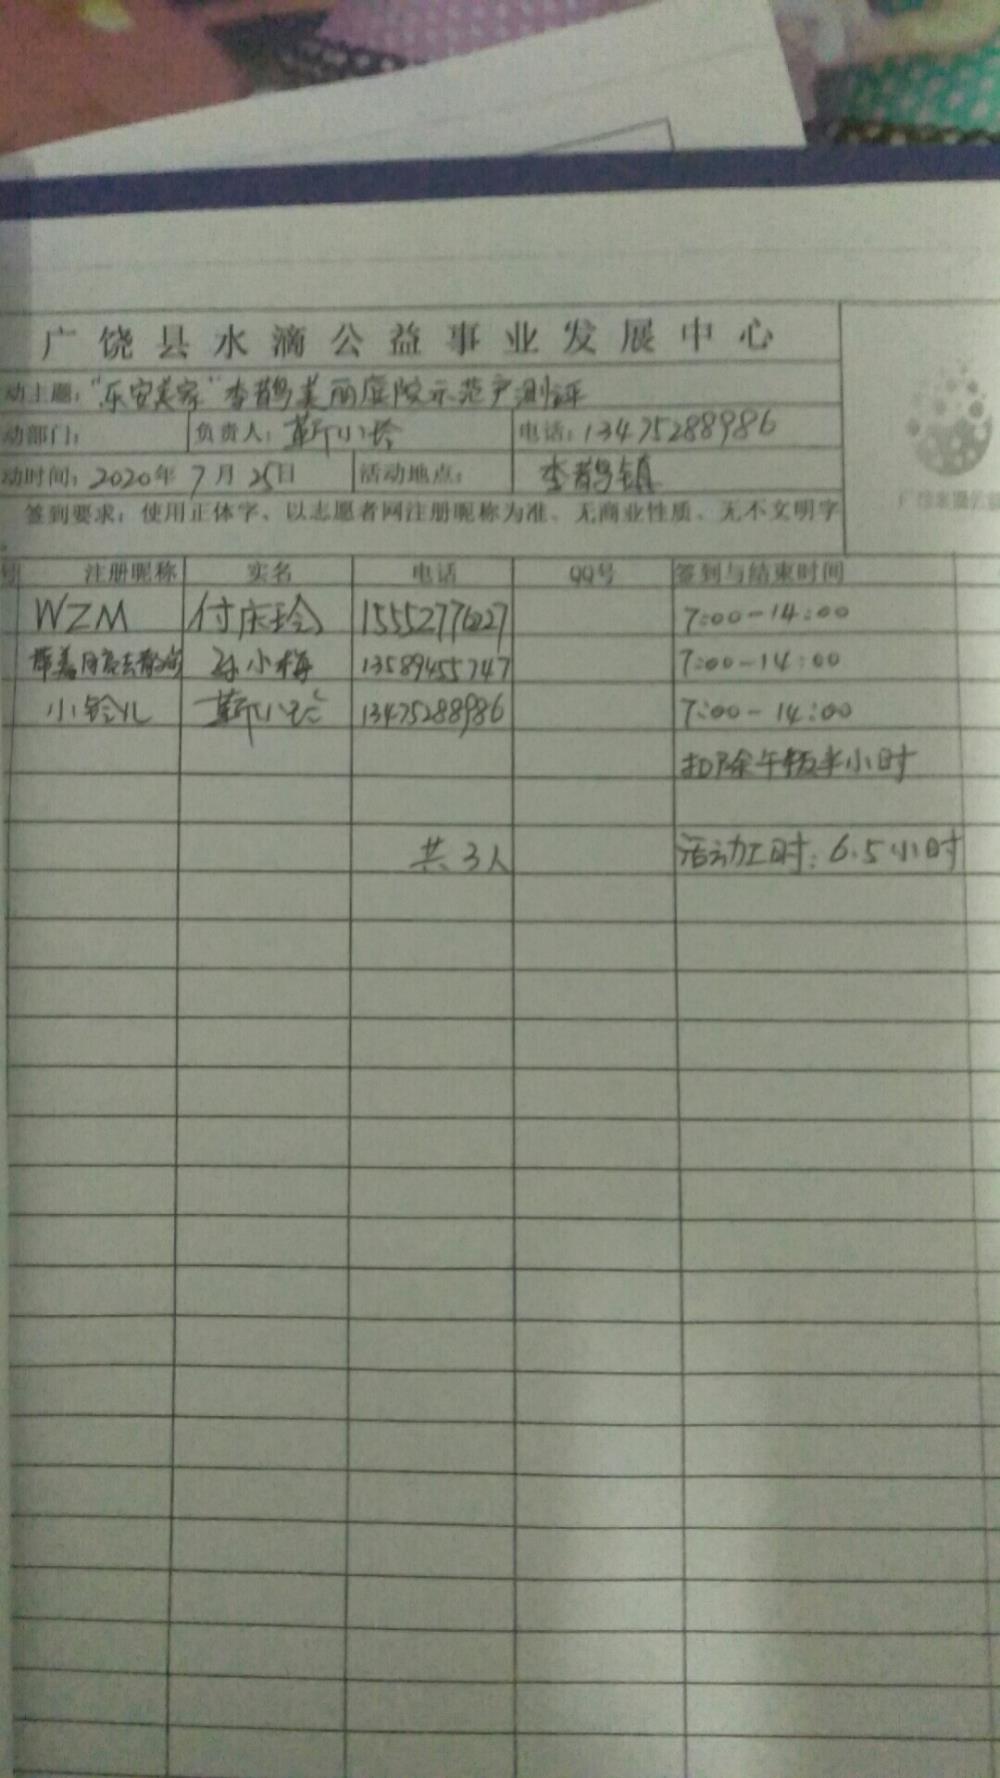 广饶县水滴公益事业发展中心
动主题："乐安美家"李鹊美丽庭院示范户测评
动部门： 负责人：靳小玲 电话：13475288986
动时间：2020年7月25日 活动地点： 李鹊镇
签到要求：使用正体字、以志愿者网注册昵称为准、无商业性质、无不文明字
注册昵称 实名 电话 QQ号 签到与结束时间
WZM 付庆玲 15552776227 7:00-14:00
孙小梅 13589455747 7:00-14:00
小铃儿 靳小玲 13475288986 7:00-14:00
扣除午饭半小时
共3人 活动工时：6.5小时